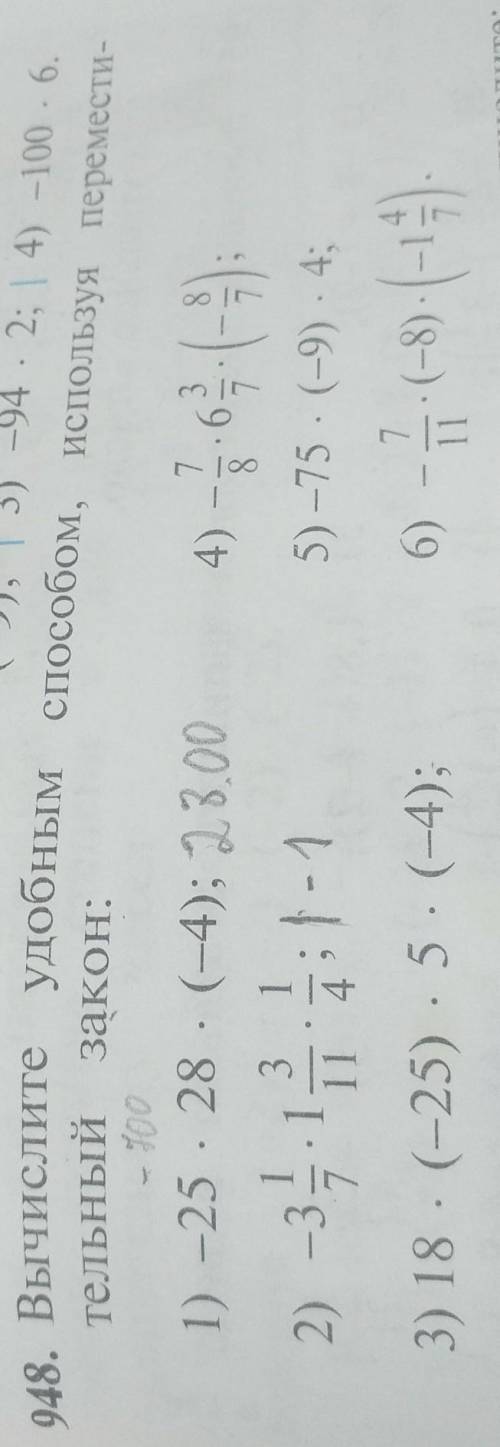 3) −94 · 2; | 4) −100 · 6.
948. Вычислите удобным способом, используя перемести-
тельный закон:
- 700
1) −25 · 28 · (−4); 2800
4) −7/8 · 6 3/7 · (−8/7);
2) −3 1/7 · 1 3/11 · 1/4; - 1
5) −75 · (−9) · 4;
3) 18 · (−25) · 5 · (−4);
6) −7/11 · (−8) · (−1 4/7).